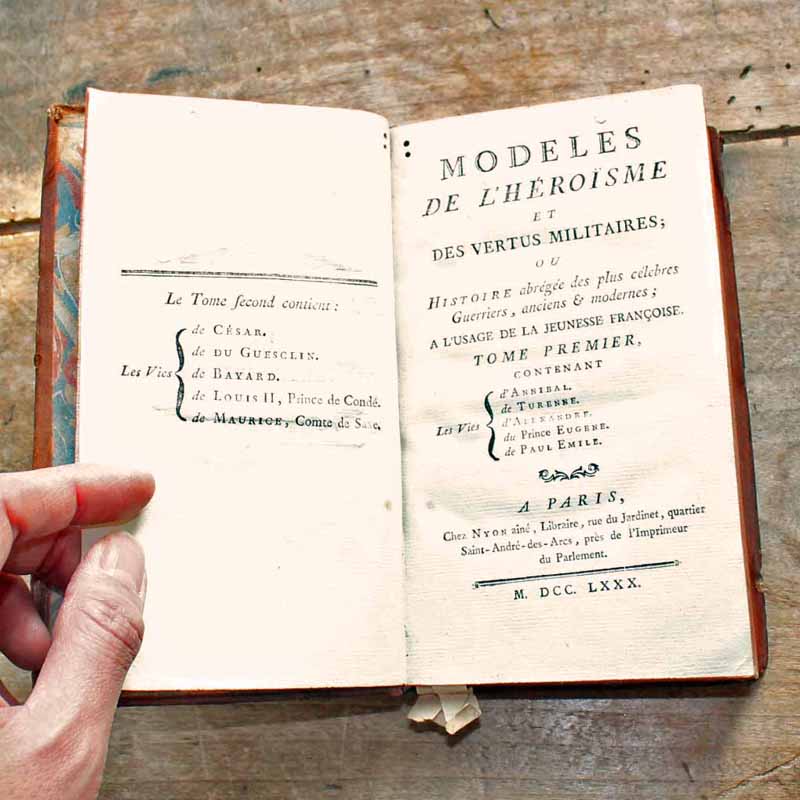 Le Tome ſecond contient :
Les Vies
de CÉSAR.
de DU GUESCLIN.
de BAYARD.
de LOUIS II, Prince de Condé.
de MAURICE, Comte de Saxe.
MODELES
DE L'HÉROÏSME
ET
DES VERTUS MILITAIRES;
OU
HISTOIRE abrégée des plus célebres
Guerriers, anciens & modernes;
A L'USAGE DE LA JEUNESSE FRANÇOISE.
TOME PREMIER,
CONTENANT
Les Vies
d'ANNIBAL.
de TURENNE.
d'ALEXANDRE.
du Prince EUGENE.
de PAUL EMILE.
A PARIS,
Chez NYON aîné, Libraire, rue du Jardinet, quartier
Saint-André-des-Arcs, près de l'Imprimeur
du Parlement.
M. DCC. LXXX.